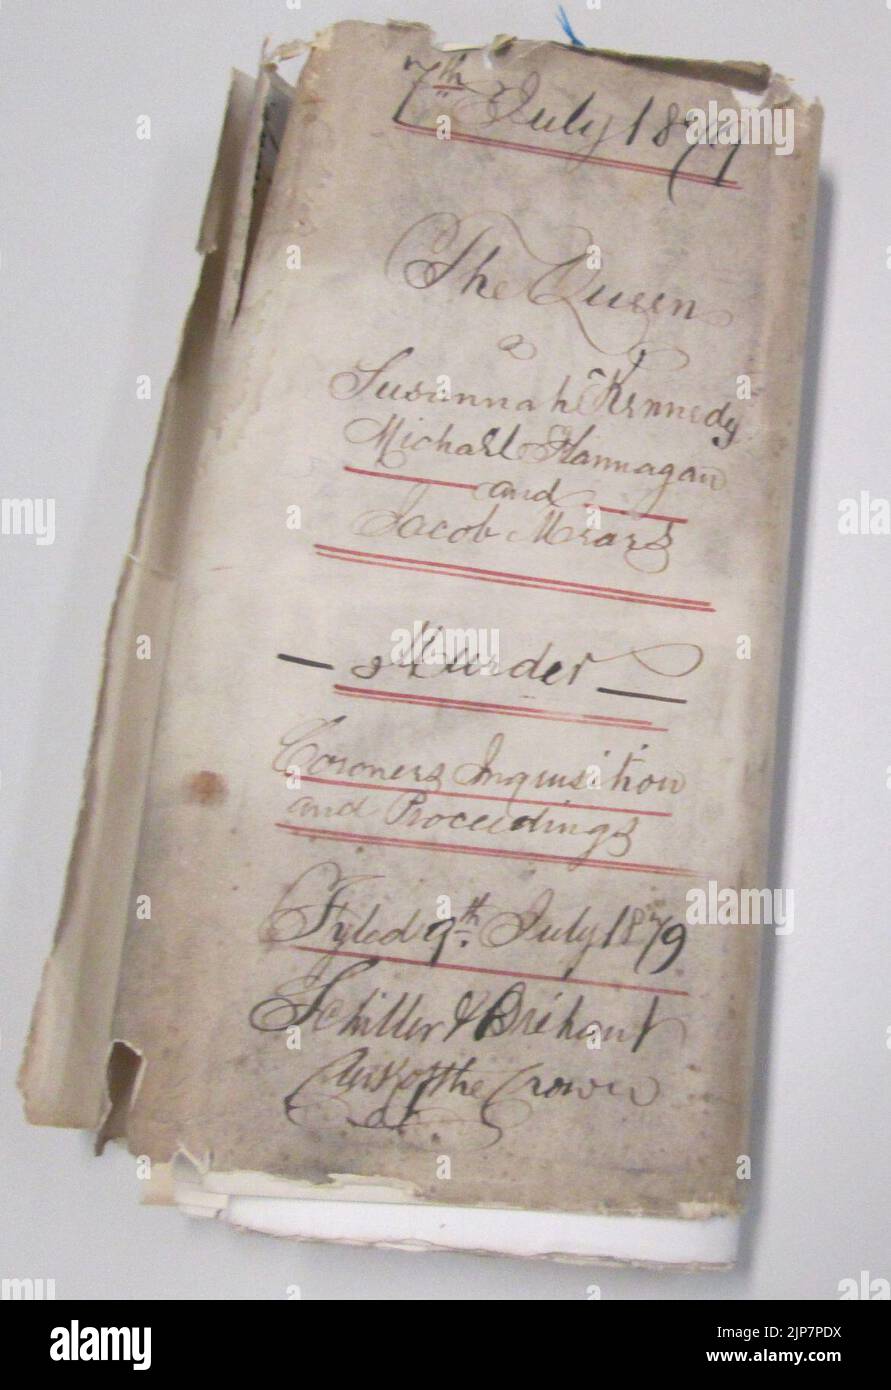 7th July 1879
The Queen
a
Susannah Kennedy
Michael Flannagan
and
Jacob Mears
Murder
Coroners Inquisition
and Proceedings
Fyled 9th July 1879
Schiller & Bréhaut
Clerk of the Crown
alamy
Image ID: 2JP7PDX
www.alamy.com